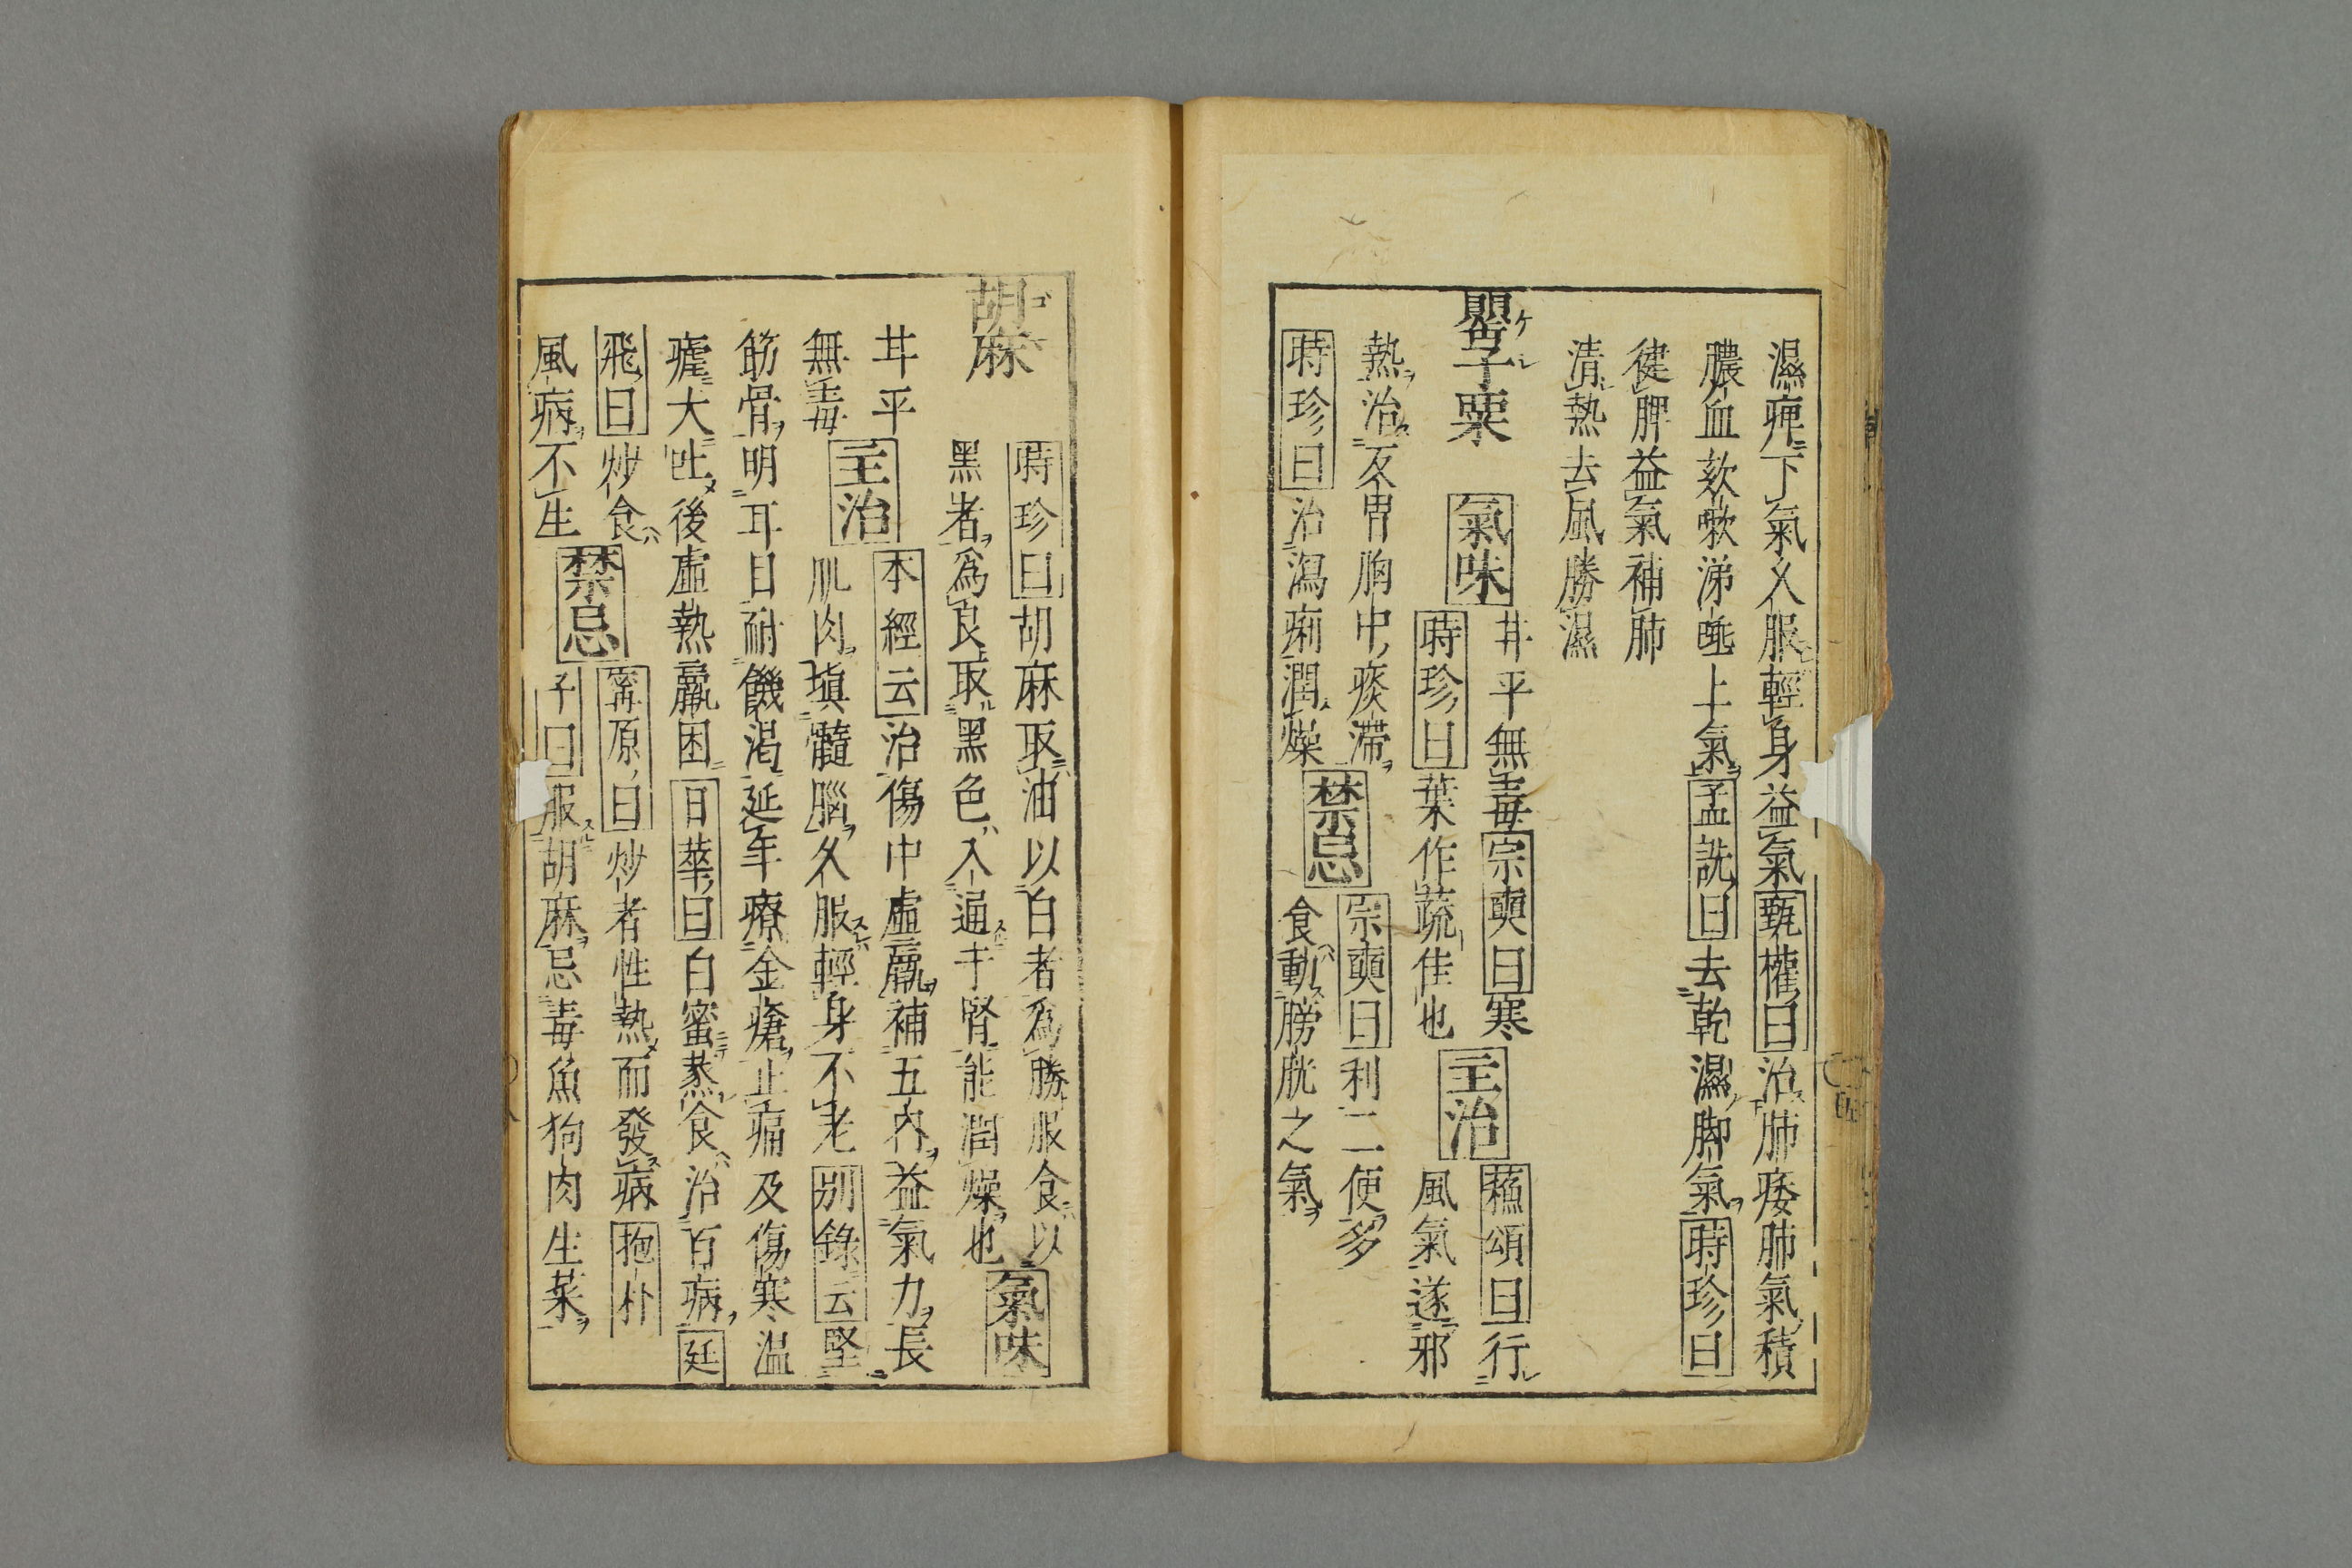 濕痺下氣久服輕身益氣甄權曰治肺痿肺氣積
膿血欬嗽涕唾上氣孟詵曰去乾濕脚氣時珍曰
健脾益氣補肺
清熱去風勝濕
罌子粟
氣味
甘平無毒宗奭曰寒
時珍曰葉作蔬佳也
主治
蘓頌曰行
風氣遂邪
熱治反胃胸中痰滯
時珍曰治瀉痢潤燥
禁忌
宗奭曰利二便多
食動膀胱之氣
胡麻
時珍曰胡麻取油以白者爲勝服食以
黑者爲良取黑色入通于腎能潤燥也
氣味
甘平
無毒
主治
本經云治傷中虛羸補五內益氣力長
肌肉塡髓腦久服輕身不老別錄云堅
筋骨明耳目耐饑渴延年療金瘡止痛及傷寒温
瘧大吐後虛熱羸困日華曰白蜜蒸食治百病廷
飛曰炒食
風病不生
禁忌
甯原曰炒者性熱而發病抱朴
子曰服胡麻忌毒魚狗肉生菜